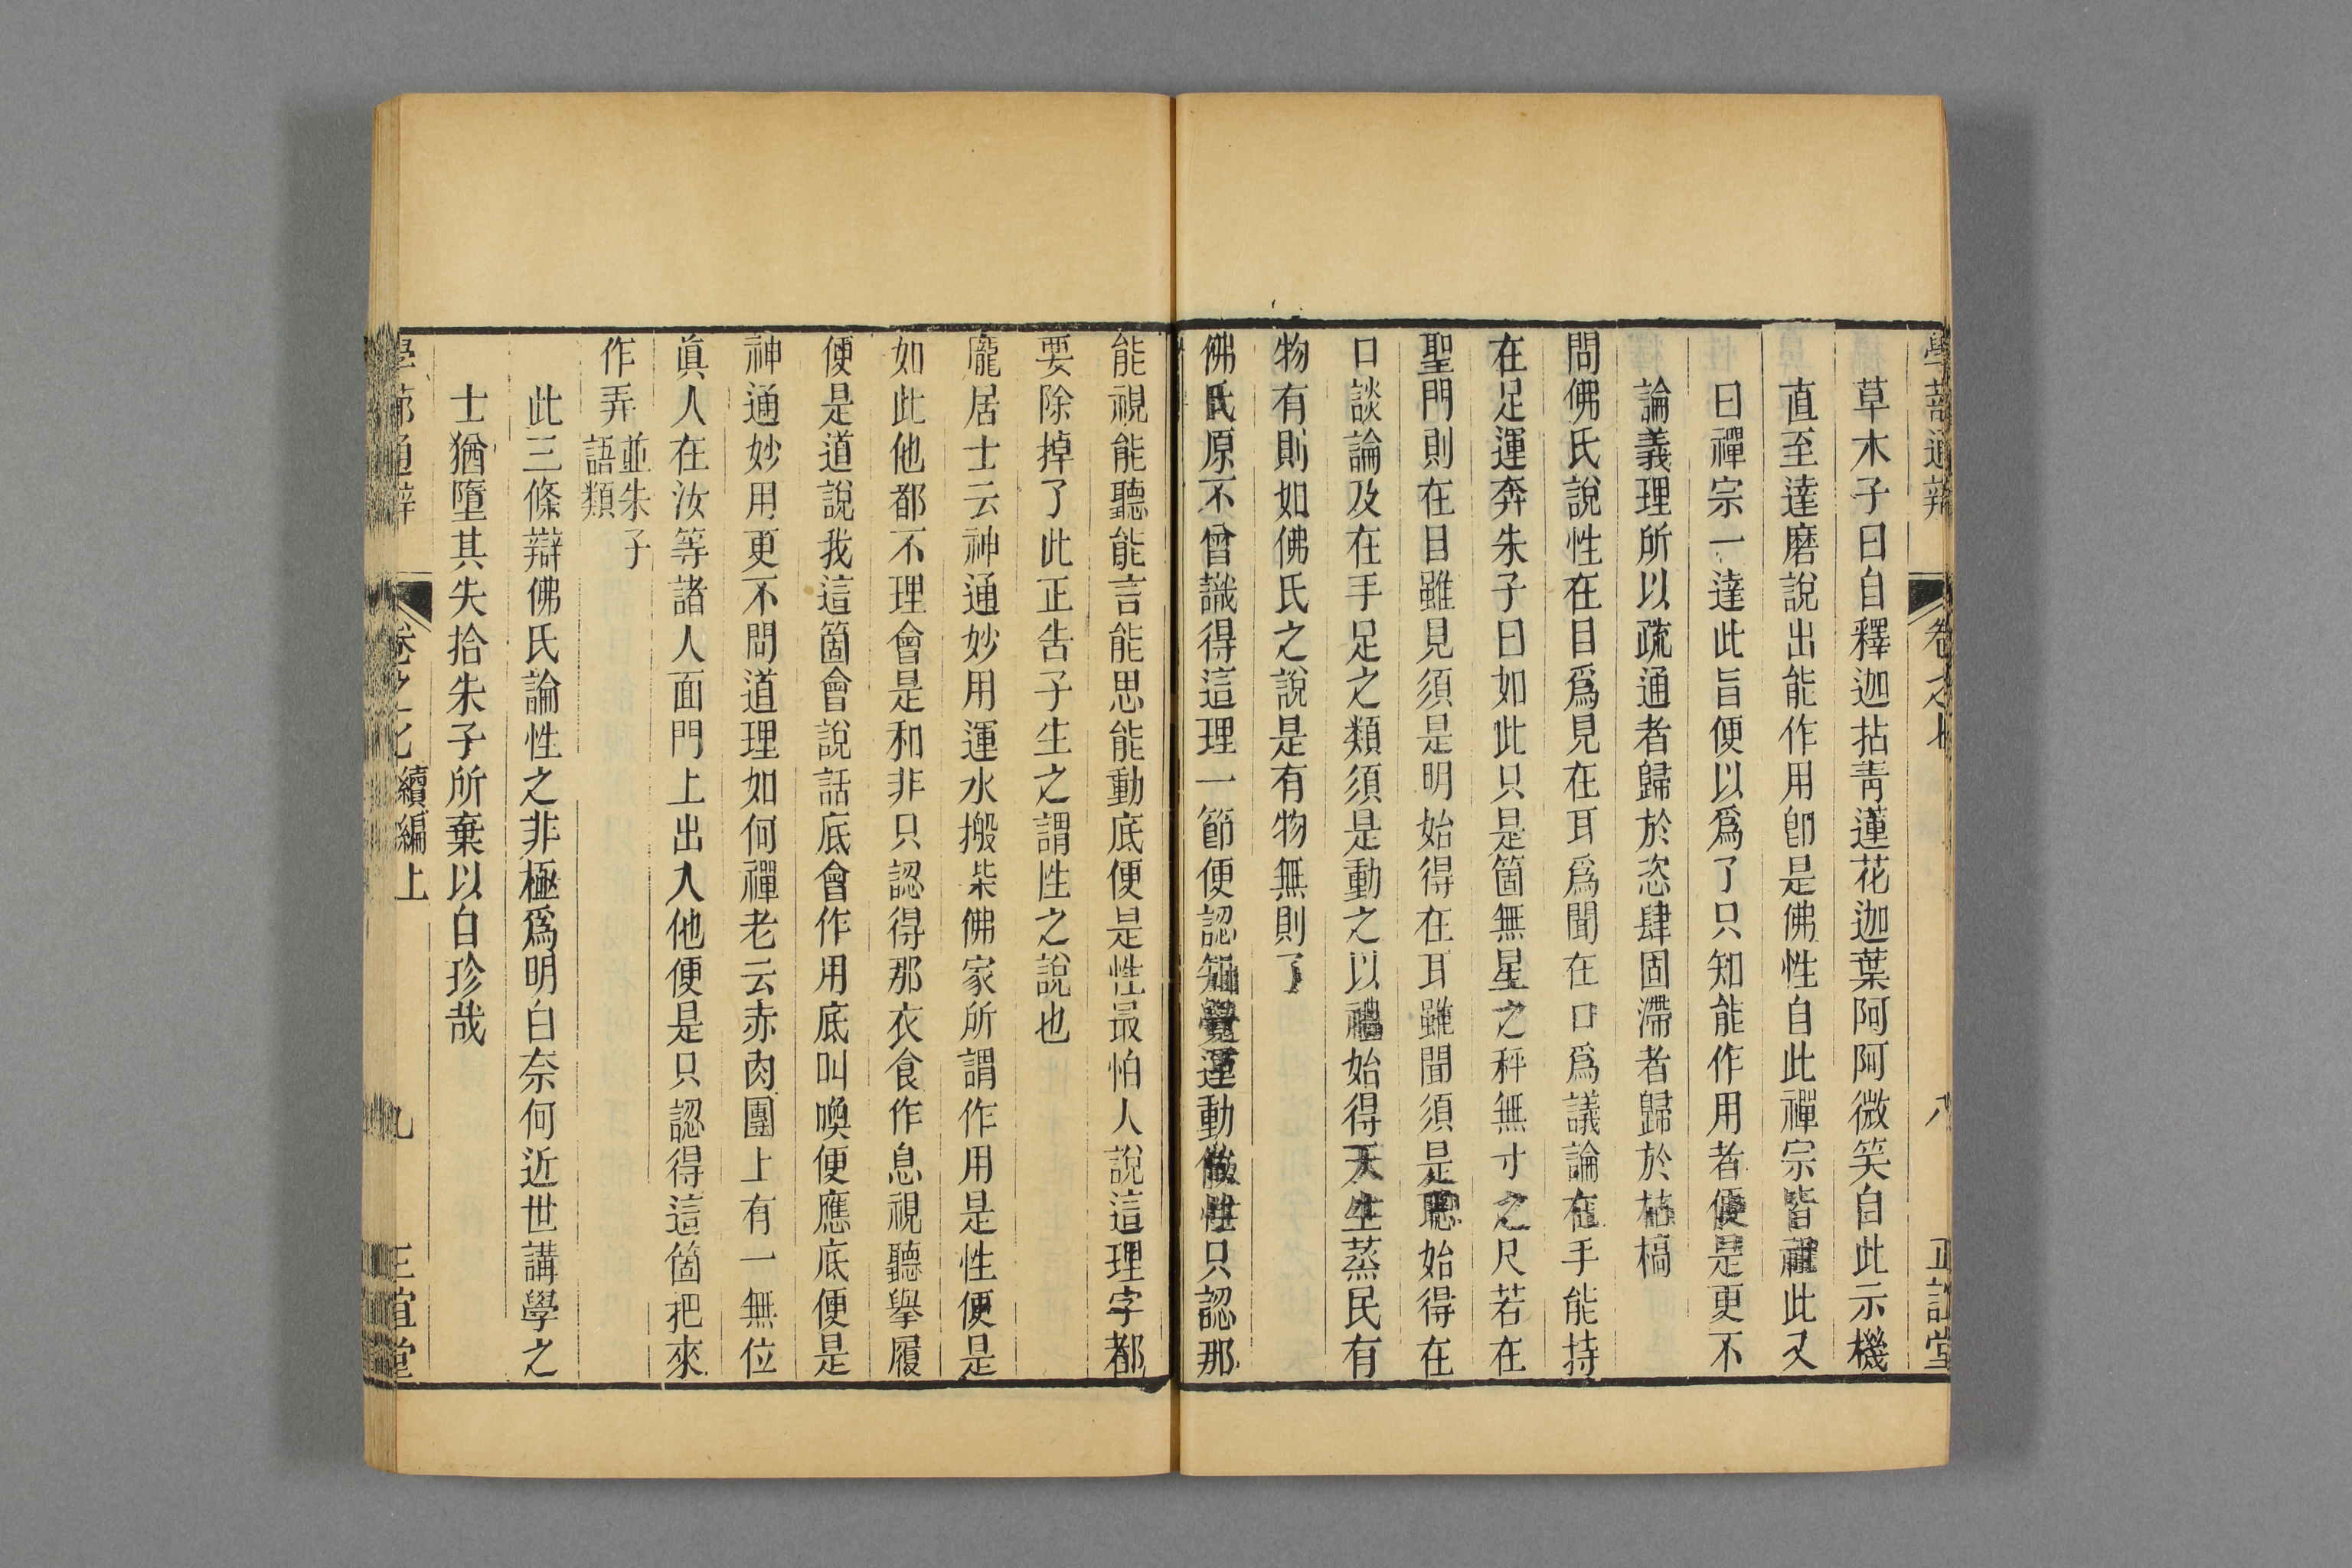 學蔀通辯 卷之七 八 正誼堂
草木子曰自釋迦拈靑蓮花迦葉阿阿微笑自此示機
直至達磨說出能作用卽是佛性自此禪宗皆祖此又
曰禪宗一達此旨便以爲了只知能作用者便是更不
論義理所以疏通者歸於恣肆固滯者歸於枯槁
問佛氏說性在目爲見在耳爲聞在口爲議論在手能持
在足運奔朱子曰如此只是箇無星之秤無寸之尺若在
聖門則在目雖見須是明始得在耳雖聞須是聰始得在
口談論及在手足之類須是動之以禮始得天生蒸民有
物有則如佛氏之說是有物無則了
佛氏原不曾識得這理一節便認知覺運動做性只認那
能視能聽能言能思能動底便是性最怕人說這理字都
要除掉了此正告子生之謂性之說也
龐居士云神通妙用運水搬柴佛家所謂作用是性便是
如此他都不理會是和非只認得那衣食作息視聽舉履
便是道說我這箇會說話底會作用底叫喚便應底便是
神通妙用更不問道理如何禪老云赤肉團上有一無位
眞人在汝等諸人面門上出入他便是只認得這箇把來
作弄並朱子語類
此三條辯佛氏論性之非極爲明白奈何近世講學之
士猶墮其失拾朱子所棄以自珍哉
學蔀通辯 卷之七 續編上 九 正誼堂